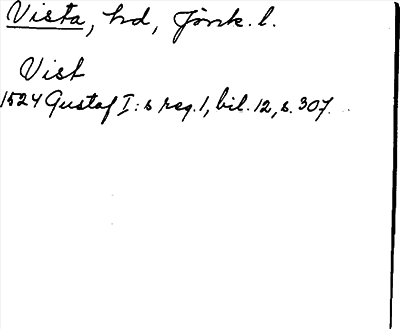 Vista, hd, Jönk. l.
Vist
1524 Gustaf I:s reg. 1, bil. 12, s. 307.